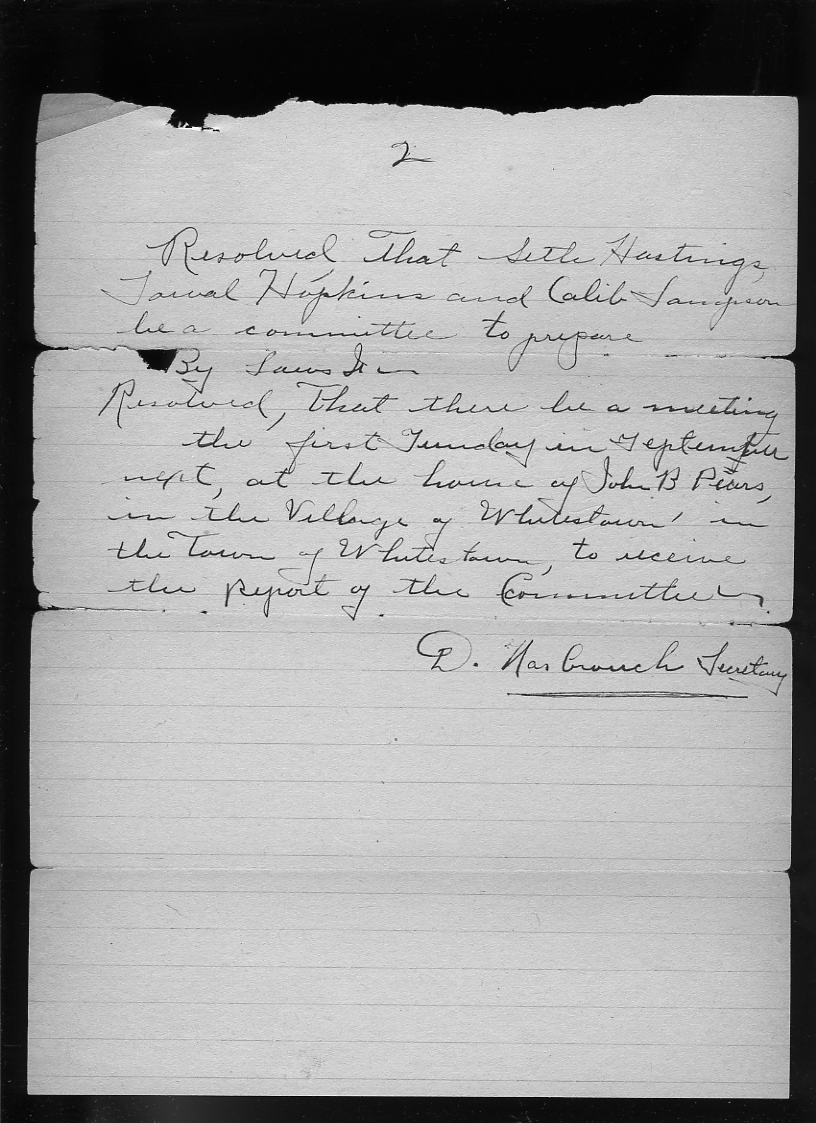 2
Resolved That Seth Hastings,
Sewal Hopkins and Calib Sampson
be a committee to prepare
By Laws
Resolved, That there be a meeting
the first in September
next, at the house of John B Pears,
in the Village of Whitestown in
the Town of Whitestown, to receive
the Report of the Committee
D. Hasbrouck Secretary